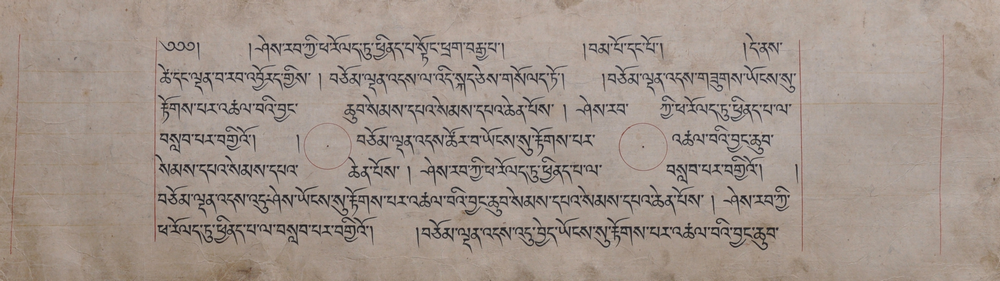 ༄༅༅། །ཤེས་རབ་ཀྱི་ཕ་རོལད་ཏུ་ཕྱིནད་པ་སྟོང་ཕྲག་བརྒྱ་པ། །བམ་པོ་དང་པོ། །དེ་ནས་
ཚེ་དང་ལྡན་བ་རབ་འབྱོརད་གྱིས། །བཅོམ་ལྡན་འདས་ལ་འདི་སྐད་ཅེས་གསོལད་ཏོ། །བཅོམ་ལྡན་འདས་གཟུགས་ཡོངས་སུ་
རྟོགས་པར་འཚལ་བའི་བྱང་ཆུབ་སེམས་དཔའ་སེམས་དཔའ་ཆེན་པོས། ཤེས་རབ་ཀྱི་ཕ་རོལད་ཏུ་ཕྱིནད་པ་ལ་
བསླབ་པར་བགྱིའོ། །བཅོམ་ལྡན་འདས་ཚོར་བ་ཡོངས་སུ་རྟོགས་པར་འཚལ་བའི་བྱང་ཆུབ་
སེམས་དཔའ་སེམས་དཔའ་ཆེན་པོས། །ཤེས་རབ་ཀྱི་ཕ་རོལད་ཏུ་ཕྱིནད་པ་ལ་བསླབ་པར་བགྱིའོ། །
བཅོམ་ལྡན་འདས་འདུ་ཤེས་ཡོངས་སུ་རྟོགས་པར་འཚལ་བའི་བྱང་ཆུབ་སེམས་དཔའ་སེམས་དཔའ་ཆེན་པོས། །ཤེས་རབ་ཀྱི་
ཕ་རོལད་ཏུ་ཕྱིནད་པ་ལ་བསླབ་པར་བགྱིའོ། །བཅོམ་ལྡན་འདས་འདུ་བྱེད་ཡོངས་སུ་རྟོགས་པར་འཚལ་བའི་བྱང་ཆུབ་